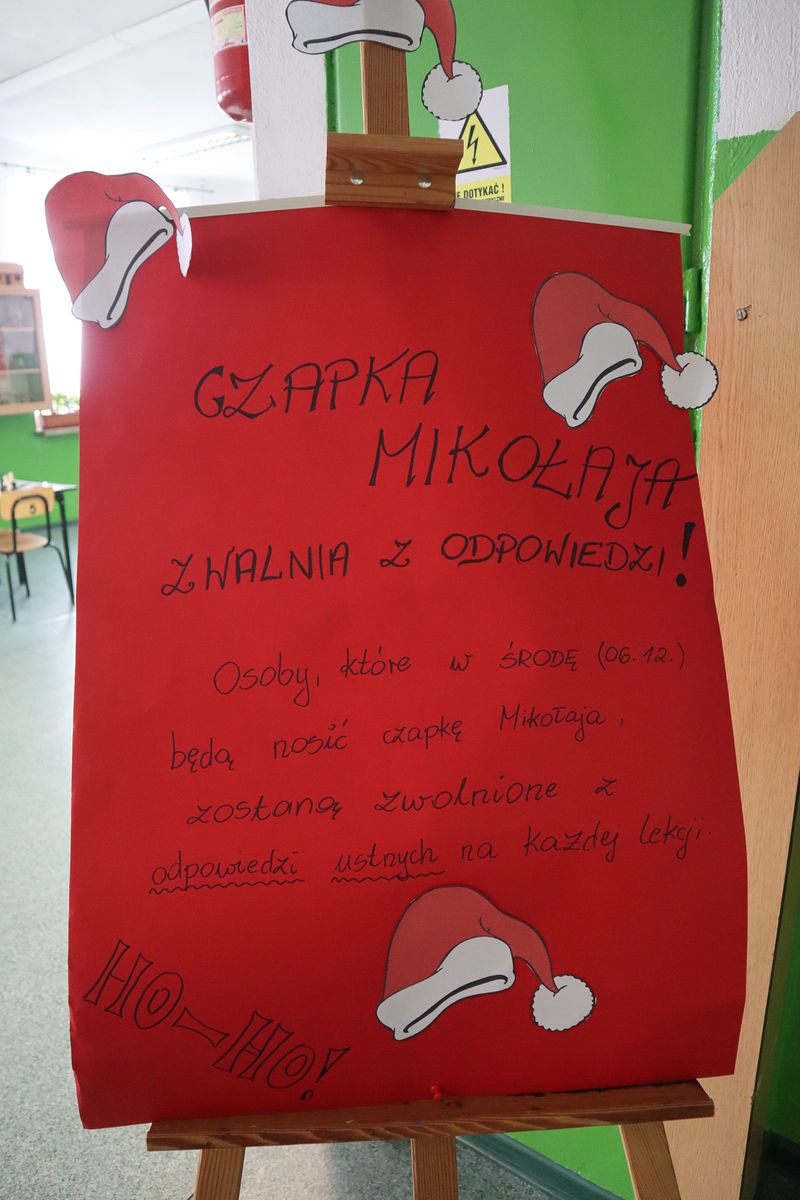 E DOTYKAĆ !
CZAPKA
MIKOŁAJA
ZWALNIA Z ODPOWIEDZI!
Osoby, które w ŚRODĘ (06.12.)
będą nosić czapkę Mikołaja,
zostaną zwolnione z
odpowiedzi ustnych na każdej lekcji.
HO-HO!
5